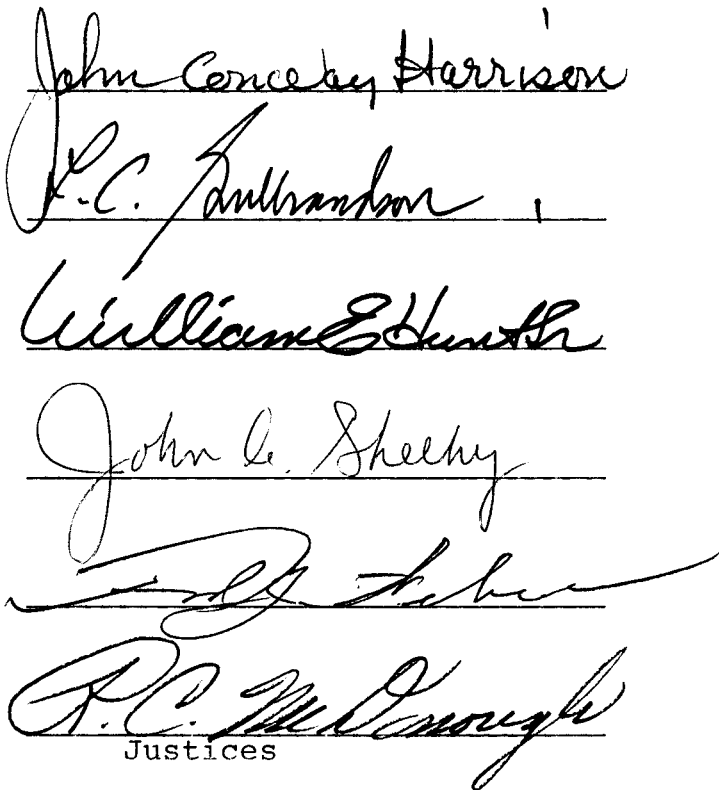 John Conway Harrison
L.C. Gulbrandson
William E Hunter
John C. Sheehy
R.C. McDonough
Justices